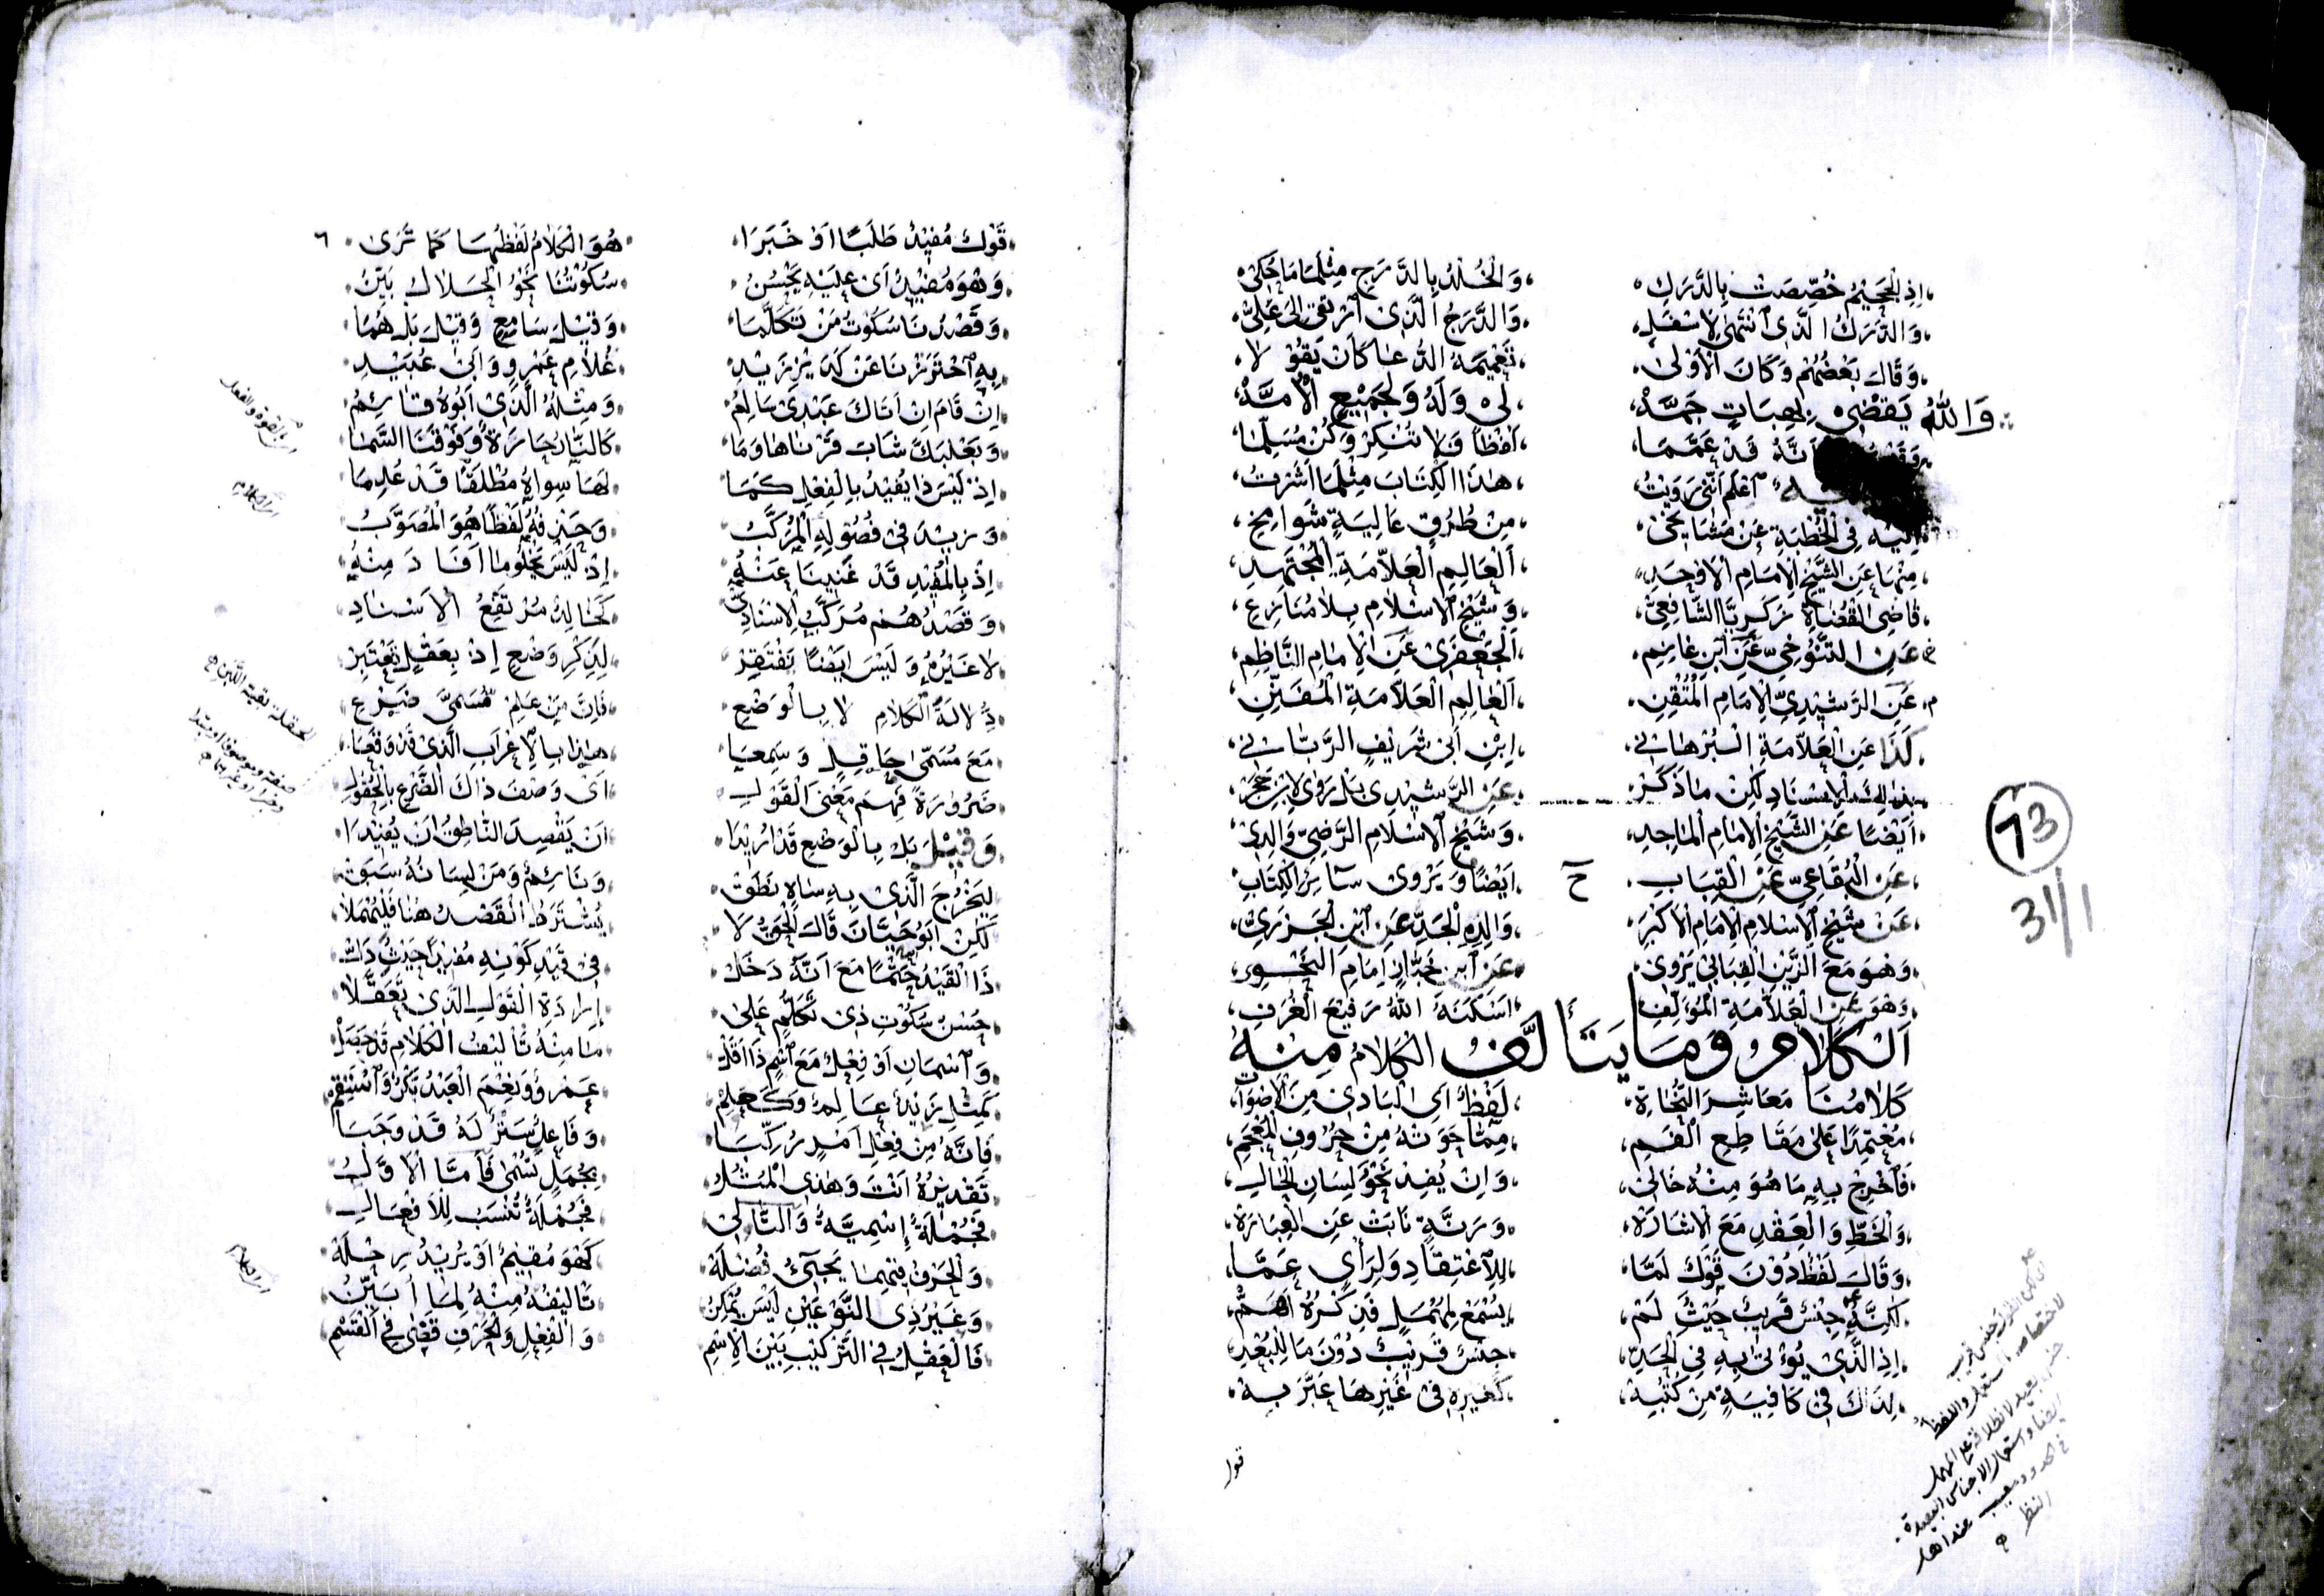 اِذِ الْجَحِيْمُ خُصِّصَتْ بِالدَّرَكِ وَالْخُلْدُ بِالدَّرَجِ مِثْلَمَا حُكِيْ
وَالدَّرَكُ الَّذِى انْتَمٰى لِاَسْفَلِ وَالدَّرَجُ الَّذِى ارْتَقٰى اِلٰى عَلِيِّ
وَقَالَ بَعْضُهُمْ وَكَانَ الْاَوْلٰى تَعْمِيْمَهُ الدُّعَا كَاَنْ يَقُوْلَا
وَاللّٰهُ يَقْضِىْ بِهِبَاتٍ جَمَّةْ لِىْ وَلَهُ وَلِجَمِيْعِ الْاُمَّةْ
اَنَّهُ قَدْ عَمَّمَا لَفْظًا فَلَا تُنْكِرْ وَكُنْ مُسَلِّمَا
اَعْلَمْ اَنَّنِى رَوَيْتُ هٰذَا الْكِتَابَ مِثْلَمَا اَشَرْتُ
اِلَيْهِ فِى الْخُطْبَةِ عَنْ مَشَايِخِىْ مِنْ طُرُقٍ عَالِيَةٍ شَوَامِخِ
مِنْهَا عَنِ الشَّيْخِ الْاِمَامِ الْاَوْحَدِ اَلْعَالِمِ الْعَلَّامَةِ الْمُجْتَهِدِ
قَاضِى الْقُضَاةِ زَكَرِيَّا الشَّافِعِيِّ وَشَيْخِ الْاِسْلَامِ بِلَا مُنَازِعِ
عَنِ التَّنُوخِيِّ عَنِ ابْنِ غَانِمِ الْجَعْفَرِى عَنِ الْاِمَامِ النَّاظِمِ
عَنِ الرَّشِيْدِيِّ الْاِمَامِ الْمُتْقِنِ اَلْعَالِمِ الْعَلَّامَةِ الْمُفَنِّنِ
كَذَا عَنِ الْعَلَّامَةِ الْبُرْهَانِىْ اِبْنِ اَبِىْ شَرِيْفٍ الرَّبَّانِىْ
الْاِسْنَادِ لٰكِنْ مَا ذَكَرْ عَنِ الرَّشِيْدِى بَلْ رَوٰى لِابْنِ حَجَرْ
اَيْضًا عَنِ الشَّيْخِ الْاِمَامِ الْمَاجِدِ وَشَيْخِ الْاِسْلَامِ الرَّضِيِّ وَالِدِىْ
عَنِ الْبُقَاعِيِّ عَنِ الْقِبَابِ اَيْضًا وَيَرْوِى سَائِرَ الْكِتَابِ
ح
عَنْ شَيْخِ الْاِسْلَامِ الْاِمَامِ الْاَكْبَرِ وَالِدِهِ الْجَدِّ عَنِ ابْنِ الْجَزَرِيْ
وَهُوَ مَعَ الزَّيْنِ الْقِبَابِىْ يَرْوِىْ عَنِ ابْنِ خَبَّازٍ اِمَامِ النَّحْوِ
وَهُوَ عَنِ الْعَلَّامَةِ الْمُؤَلِّفِ اَسْكَنَهُ اللّٰهُ رَفِيْعَ الْغُرَفِ
اَلْكَلَامُ وَمَا يَتَأَلَّفُ الْكَلَامُ مِنْهُ
كَلَامُنَا مَعَاشِرَ النُّحَاةِ لَفْظٌ اَىِ الْبَادِى مِنَ الْاَصْوَاتِ
مُعْتَمِدًا عَلٰى مَقَاطِعِ الْفَمِ مِمَّا حَوَتْهُ مِنْ حُرُوفِ الْمُعْجَمِ
فَاَخْرَجَ بِهِ مَا هُوَ مِنْهُ خَالِىْ وَاِنْ يُفِدْ نَحْوُ لِسَانِ الْحَالِ
وَالْخَطِّ وَالْعَقْدِ مَعَ الْاِشَارَةْ وَرَنَّةٍ نَابَتْ عَنِ الْعِبَارَةْ
وَقَالَ لَفْظٌ دُوْنَ قَوْلٍ لَمَّا لِلْاِعْتِقَادِ وَلِرَأْىٍ عَمَّا
لٰكِنَّهُ جِنْسٌ قَرِيْبٌ حَيْثُ لَمْ يُسْمَعْ لِمُهْمَلٍ فَذِكْرُهُ اَهَمّْ
اِذِ الَّذِىْ يُوْتٰى بِهِ فِى الْحَدِّ جِنْسٌ قَرِيْبٌ دُوْنَ مَا لِلْبُعْدِ
لِذَاكَ فِىْ كَافِيَةٍ مِنْ كُتْبِهْ كَغَيْرِهِ فِىْ غَيْرِهَا عَبَّرَ بِهْ
قول
73
31/1
قَوْلٌ مُفِيْدٌ طَلَبًا اَوْ خَبَرَا هُوَ الْكَلَامُ لَفْظُهَا كَمَا تَرٰى
٦
وَهُوَ مُفِيْدٌ اَىْ عَلَيْهِ يَحْسُنُ سُكُوْتُنَا نَحْوُ الْحَلَالُ بَيِّنُ
وَقَصْدُنَا سُكُوْتُ مَنْ تَكَلَّمَا وَقِيْلَ سَامِعٍ وَقِيْلَ بَلْ هُمَا
بِهِ احْتَرَزْنَا عَنْ كَدَيْرِ زَيْدِ غُلَامِ عَمْرٍو وَاَبِىْ عُبَيْدِ
اِنْ قَامَ اِنْ اَتَاكَ عَبْدِىْ سَالِمُ وَمِثْلُهُ الَّذِىْ اَبُوْهُ قَائِمُ
وَبَعْلَبَكَّ شَابَ قَرْنَاهَا وَمَا كَالنَّارُ حَارَةٌ وَفَوْقَنَا السَّمَا
اِذْ لَيْسَ ذَا يُفِيْدُ بِالْفِعْلِ كَمَا لَهَا سِوَاهُ مُطْلَقًا قَدْ عُلِمَا
وَزِيْدَ فِىْ فُصُوْلِهِ الْمُرَكَّبُ وَحَذْفُهُ لَفْظًا هُوَ الْمُصَوَّبُ
اِذْ بِالْمُفِيْدِ قَدْ غَنِيْنَا عَنْهُ اِذْ لَيْسَ يَخْلُو مَا اَفَادَ مِنْهُ
وَقَصْدُهُمْ مُرَكَّبُ الْاِسْنَادِ كَخَالِدٌ مُرْتَفِعُ الْاِسْنَادِ
لَا غَيْرُهُ وَلَيْسَ اَيْضًا يَفْتَقِرْ لِذِكْرِ وَضْعٍ اِذْ بِعَقْلٍ يَعْتَبِرْ
دِلَالَةُ الْكَلَامِ لَا بِالْوَضْعِ فَاِنَّ مَنْ عَلِمْ مُسَمّٰى ضَرْعِ
مَعَ مُسَمّٰى حَافِلٍ وَسَمِعَا هٰذَا بِالْاِعْرَابِ الَّذِىْ قَدْ وَقَعَا
ضَرُوْرَةً فَهِمَ مَعْنَى الْقَوْلِ اَىْ وَصْفَ ذَاكَ الضَّرْعِ بِالْحُفُوْلِ
وَقِيْلَ بَلْ بِالْوَضْعِ قَدْ اُرِيْدَا اَنْ يَقْصِدَ النَّاطِقُ اَنْ يُفِيْدَا
لِيَخْرُجَ الَّذِىْ بِهِ سَاهٍ نَطَقْ وَنَائِمٌ وَمَنْ لِسَانُهُ سَبَقْ
لٰكِنْ اَبُوْ حَيَّانَ قَالَ الْحَقُّ لَا يُشْتَرَطُ الْقَصْدُ هُنَا فَلْيُهْمَلَا
ذَا الْقَيْدُ حَتْمًا مَعَ اَنَّهُ دَخَلْ فِىْ قَيْدِ كَوْنِهِ مُفِيْدًا حَيْثُ دَلّْ
حُسْنُ سُكُوْتِ ذِىْ تَكَلُّمٍ عَلٰى اِرَادَةِ الْقَوْلِ الَّذِىْ تَعَقَّلَا
وَاسْمَانِ اَوْ فِعْلٌ مَعَ اسْمٍ ذَا اَقَلّْ مَا مِنْهُ تَأْلِيْفُ الْكَلَامِ قَدْ حَصَلْ
كَمِثْلِ زَيْدٌ عَالِمٌ وَكَعَلِمْ عَمْرٌو وَنِعْمَ الْعَبْدُ بَكْرٌ وَاسْتَقِمْ
فَاِنَّهُ مِنْ فِعْلِ اَمْرٍ رُكِّبَا وَفَاعِلٍ سَتْرٌ لَهُ قَدْ وَجَبَا
تَقْدِيْرُهُ اَنْتَ وَهٰذِى الْمُثُلُ بِجُمَلٍ تُسْمٰى فَاَمَّا الْاَوَّلُ
فَجُمْلَةٌ اِسْمِيَّةٌ وَالتَّالِىْ فَجُمْلَةٌ تُنْسَبُ لِلْاَفْعَالِ
وَالْحَرْفُ فِيْهِمَا يَجِىْءُ فُضْلَةْ كَهُوَ مُقِيْمٌ اَوْ يُرِيْدُ رِحْلَةْ
وَغَيْرُ ذِى النَّوْعَيْنِ لَيْسَ يُمْكِنُ تَأْلِيْفُهُ مِنْهُ لِمَا اُبَيِّنُ
فَالْعَقْلُ فِى التَّرْكِيْبِ بَيْنَ الْاِسْمِ وَالْفِعْلِ وَالْحَرْفِ قَضٰى فِى الْقَسْمِ